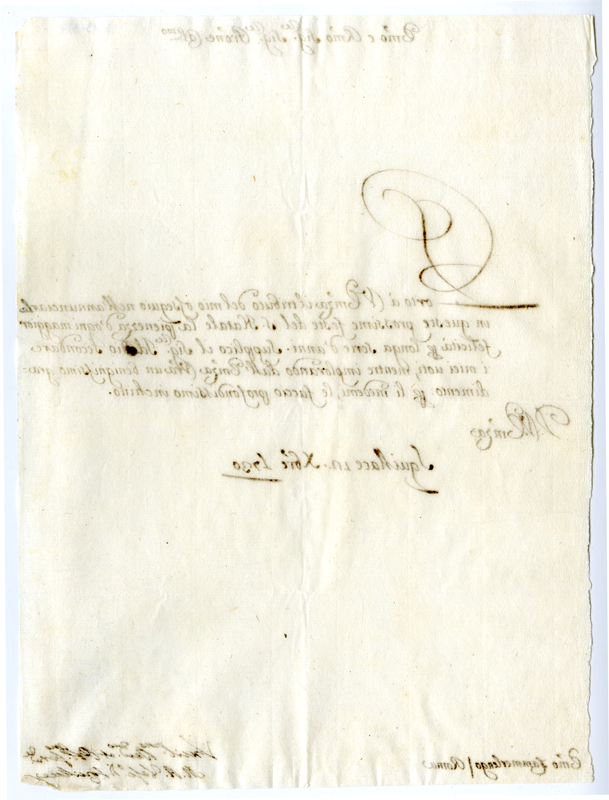 Em.mo e Rmo Sig.re Sig.re Prone Col.mo
Porto à V. Emza il tributo del mio ossequio nell'annunciarle
in queste prossime feste del S. Natale la pienezza d'ogni maggior
felicità p longa serie d'anni. Supplico il Sig.re Iddio secondare
i miei voti, mentre implorando dall' Emza Vra un benignissimo gra-
dimento p li medemi, le faccio profondissimo inchino.
V. Emza
Squillace Xbre 1730
Emo Zammerlengo / Roma